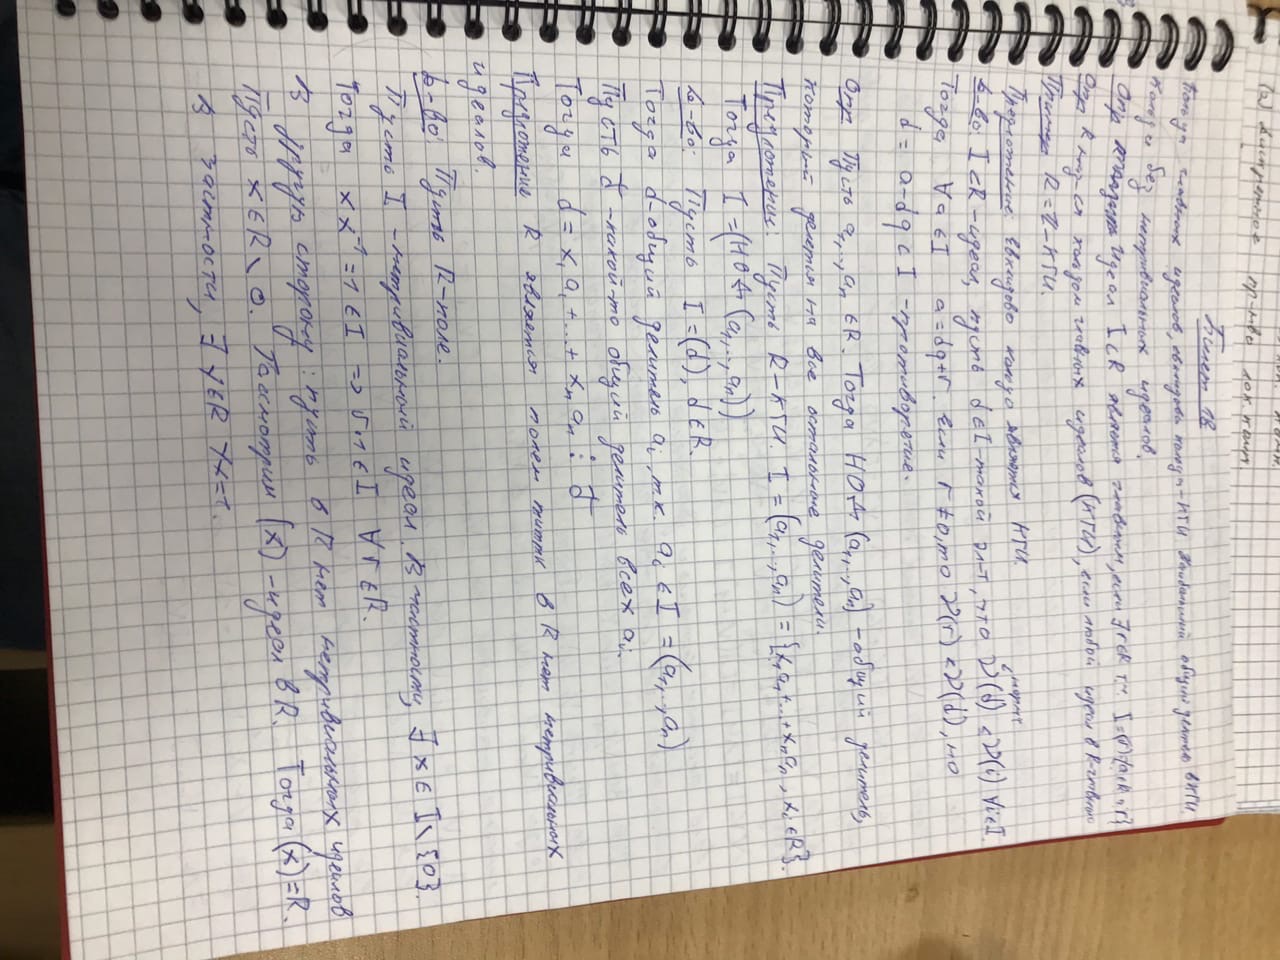 (2) Дискретное пр-тво лок. комп.
Билет 18
Кольца главных идеалов, евклидовы кольца - КГИ. Наибольший общий делитель в КГИ.
Кольца без нетривиальных идеалов.
Опр Идеал I⊂R является главным, если ∃r∈R т.ч. I=(r)
Опр R наз-ся кольцом главных идеалов (КГИ), если любой идеал в R - главный
Пример R=ℤ - КГИ.
Предложение: Евклидово кольцо является КГИ.
норма
Д-во: I⊂R - идеал, пусть d∈I - такой эл-т, что 𝒱(d) < 𝒱(i) ∀i∈I.
Тогда ∀a∈I a=dq+r. Если r≠0, то 𝒱(r)<𝒱(d), но
d = a-dq ∈ I - противоречие.
Опр Пусть a₁,..,aₙ ∈R. Тогда НОД (a₁,..,aₙ) - общий делитель,
который делется на все остальные делители.
Предложение: Пусть R - КГИ. I = (a₁,..,aₙ) = {x₁a₁+...+xₙaₙ, xᵢ∈R}.
Тогда I = (НОД (a₁,..,aₙ))
Д-во: Пусть I=(d), d∈R.
Тогда d - общий делитель aᵢ, т.к. aᵢ ∈ I = (a₁,..,aₙ)
Пусть d̄ - какой-то общий делитель всех aᵢ.
Тогда d = x₁a₁+...+xₙaₙ ⋮ d̄
Предложение R является полем титтк в R нет нетривиальных
идеалов.
Д-во: Пусть R - поле.
Пусть I - нетривиальный идеал. В частности, ∃ x ∈ I\{0}.
Тогда xx⁻¹=1∈I => r·1∈I ∀r∈R.
В другую сторону: пусть в R нет нетривиальных идеалов
Пусть x∈R\0. Рассмотрим (x) - идеал в R. Тогда (x)=R.
В частности, ∃ y∈R yx=1.